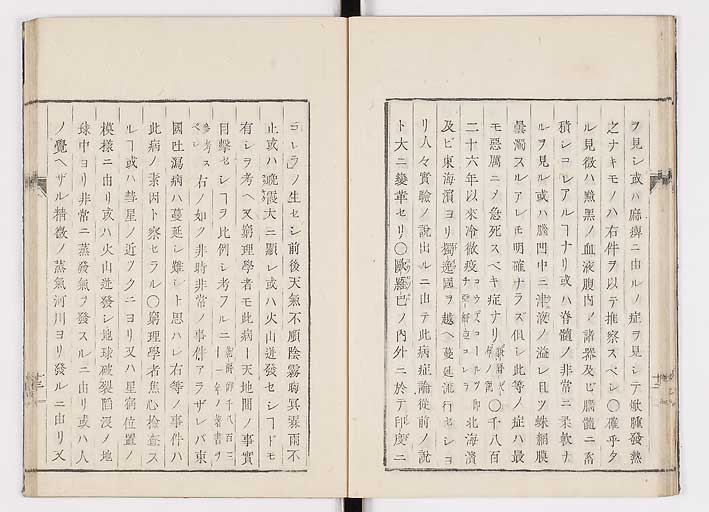 ヲ見シ或ハ麻痺ニ由ルノ症ヲ見シテ焮腫發熱
之ナキモノハ右件ヲ以テ推察スベシ〇確乎タ
ル見徴ハ黧黒ノ血液腹内ノ諸器及ビ腦髓ニ畜
積シコレアルヿナリ或ハ脊髓ノ非常ニ柔軟ナ
ルヲ見ル或ハ腦凹中ニ津液ノ溢レ且ツ蛛網膜
曇濁スルアレモ明確ナラズ但シ此等ノ症ハ最
モ惡厲ニメ急死スベキ症ナリ〇千八百
二十六年以來冷微疫北海濱
及ビ東海濱ヨリ獨逸國ヲ越ヘ蔓延流行セシヨ
リ人々實驗ノ説出ルニ由テ此病症論從前ノ説
ト大ニ變革セリ〇歐羅巴ノ内外ニ於テ印度ニ
コレラノ生セシ前後天氣不順陰霧晦冥霖雨不
止或ハ晩霞大ニ顯レ或ハ火山迸發セシヿドモ
有シヲ考ヘ又窮理學者モ此病ー天地間ノ事實
目撃セシヿヲ比例シ考フルニ
右ノ如ク非時非常ノ事件アラザレバ東
國吐瀉病ハ蔓延シ難シト思ハレ右等ノ事件ハ
此病ノ素因ト察セラル〇窮理學者焦心檢査ス
ルヿ或ハ彗星ノ近ヅクニヨリ又ハ星宿位置ノ
模樣ニ由リ或ハ火山迸發シ地球破裂陷沒ノ地
球中ヨリ非常ニ蒸發氣ヲ發スルニ由リ或ハ人
ノ覺ヘザル精微ノ蒸氣河川ヨリ發ルニ由リ又